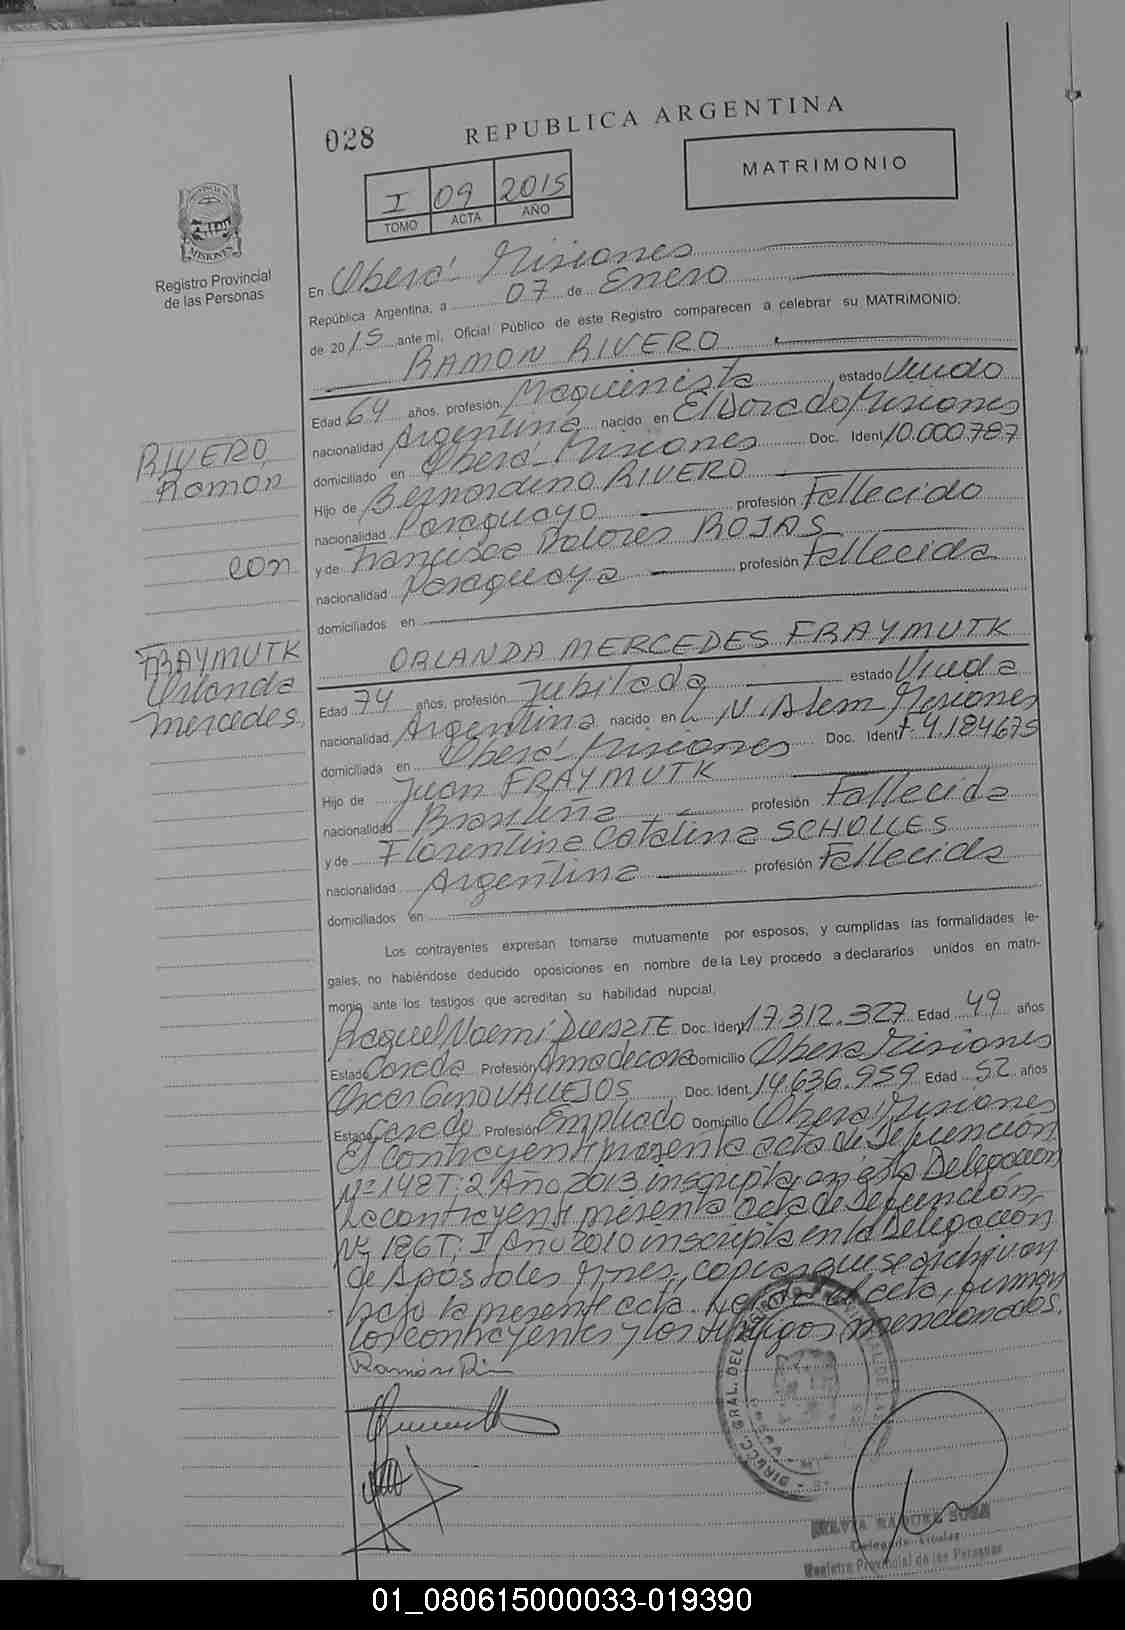 028
REPUBLICA ARGENTINA
MATRIMONIO
I 09 2015
TOMO ACTA AÑO
Registro Provincial
de las Personas
En Oberá - Misiones
República Argentina, a 07 de Enero
de 2015 ante mí, Oficial Público de este Registro comparecen a celebrar su MATRIMONIO:
RAMON RIVERO
Edad 64 años, profesión Maquinista estado Viudo
nacionalidad Argentina nacido en ElDorado Misiones
domiciliado en Oberá - Misiones Doc. Ident. 10.000.787
Hijo de Bernardino RIVERO
nacionalidad Paraguayo profesión Fallecido
y de Francisca Dolores ROJAS
nacionalidad Paraguaya profesión Fallecida
domiciliados en
RIVERO
Ramón
con
FRAYMUTK
Orlanda
Mercedes
ORLANDA MERCEDES FRAYMUTK
Edad 74 años, profesión Jubilada estado Viuda
nacionalidad Argentina nacido en L. N. Alem Misiones
domiciliada en Oberá - Misiones Doc. Ident. F. 4.184.675
Hijo de Juan FRAYMUTK
nacionalidad Brasilina profesión Fallecida
y de Florentina Catalina SCHOLLES
nacionalidad Argentina profesión Fallecida
domiciliados en
Los contrayentes expresan tomarse mutuamente por esposos, y cumplidas las formalidades le-
gales, no habiéndose deducido oposiciones en nombre de la Ley procedo a declararlos unidos en matri-
monio ante los testigos que acreditan su habilidad nupcial.
Raquel Noemí DUARTE Doc. Ident. 17.312.327 Edad 49 años
Estado Casada Profesión Ama de casa Domicilio Oberá Misiones
Oscar Gino VALLEJOS Doc. Ident. 14.636.959 Edad 52 años
Estado Casado Profesión Empleado Domicilio Oberá Misiones
El contrayente presenta acta de Defunción
Nº 148 T: 2 Año 2013 inscripta en esta Delegación
La contrayente presenta acta de Defunción
Nº 186 T: I Año 2010 inscripta en la Delegación
de Apóstoles Mnes, copias que se archivan
bajo la presente acta. Leída el acta, firman
los contrayentes y los testigos mencionados.
Ramón Ri
DIRECC. GRAL. DEL
RAQUEL SOSA
Delegada Titular
Registro Provincial de las Personas
01_080615000033-019390